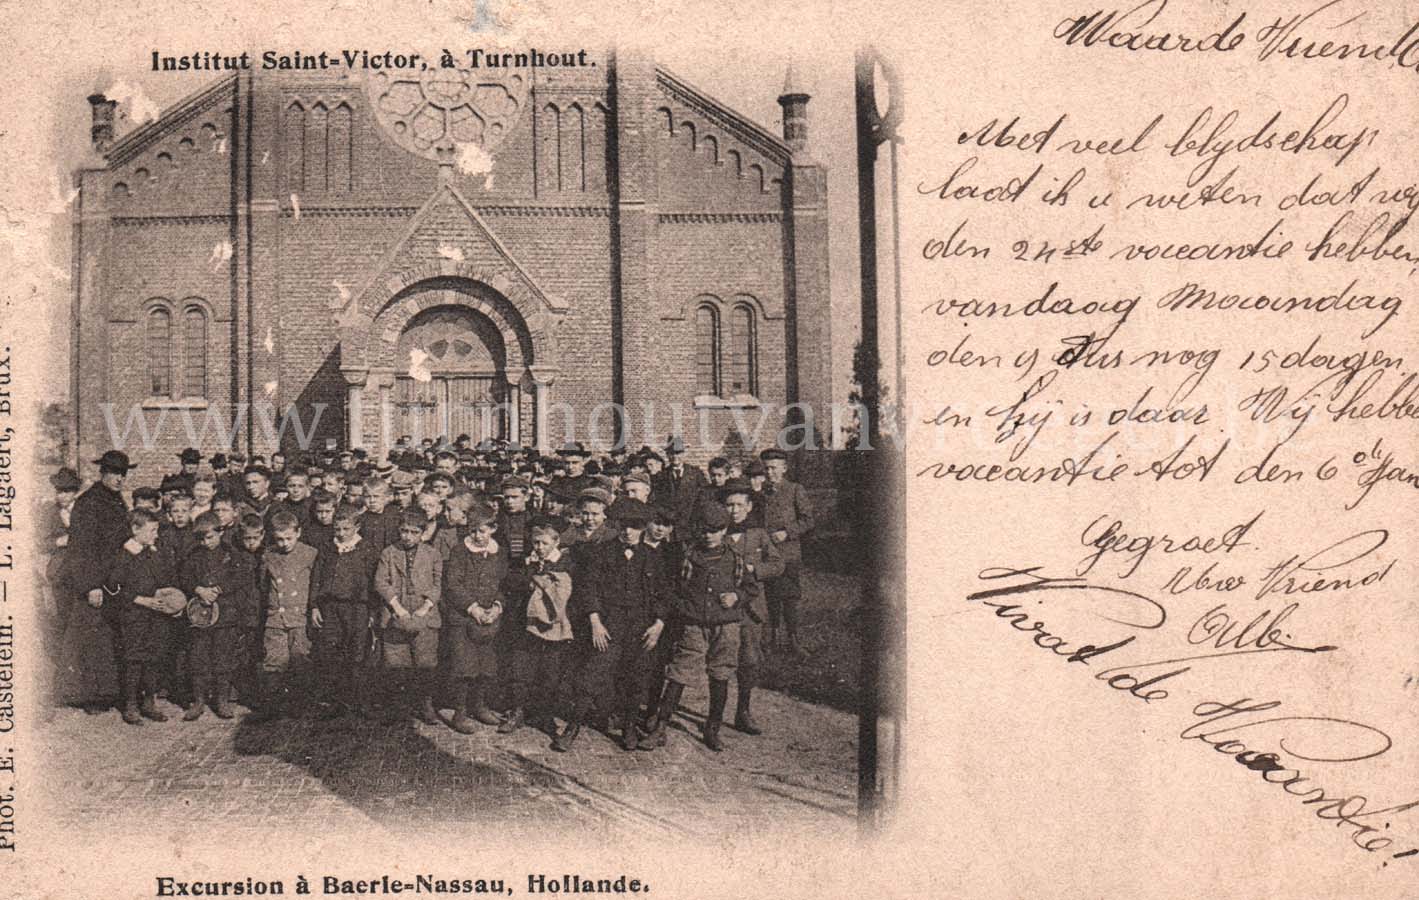 Institut Saint-Victor, à Turnhout.
Waarde Vriend
Met veel blydschap
laat ik u weten dat wy
den 24ste vacantie hebben,
vandaag Maandag
den 9 dus nog 15 dagen.
en hij is daar. Wij hebbe
vacantie tot den 6 Jan
Gegroet.
Uw Vriend
Alb.
Vivat de
Vacantie!
Excursion à Baerle-Nassau, Hollande.
Phot. E. Castelein. — L. Lagaert, Brux.
www.turnhoutvanvroeger.be